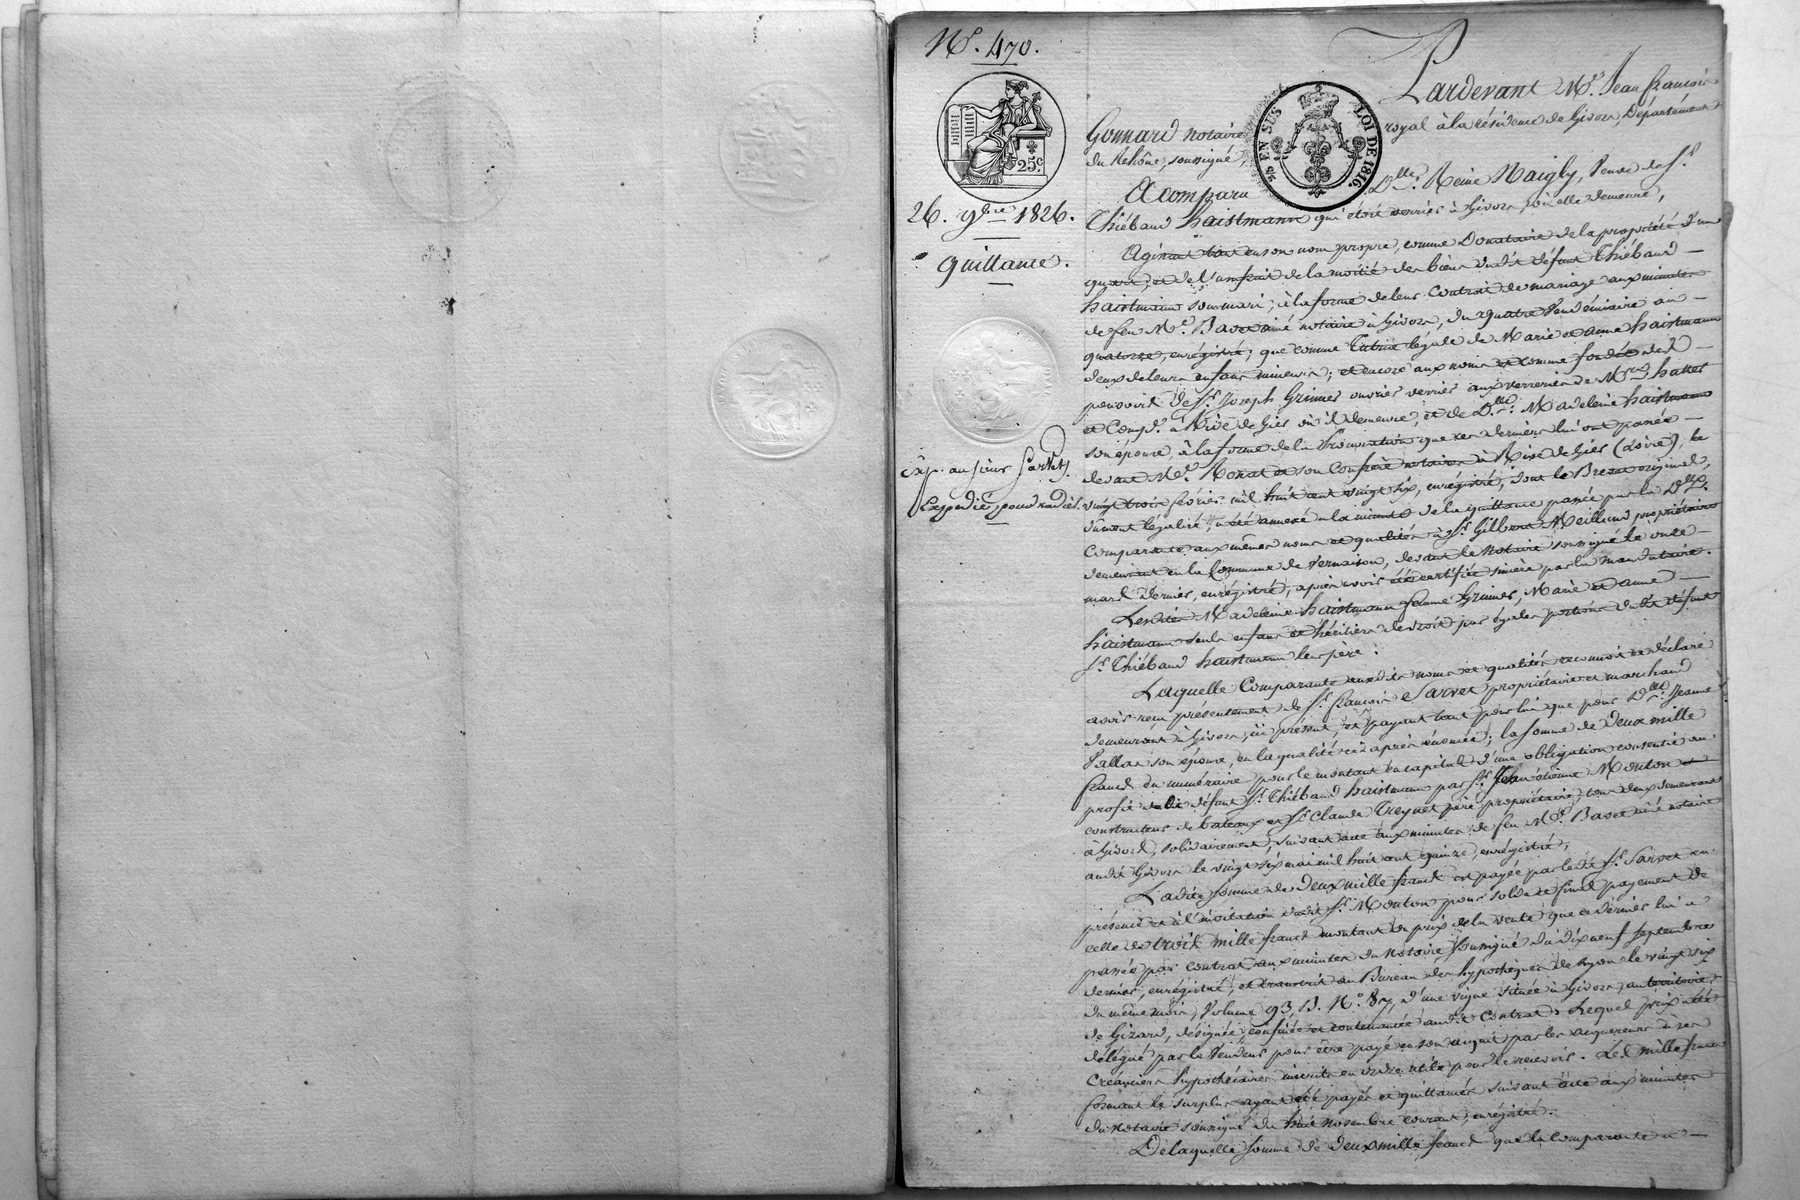 N.º 470.
25 EN SUS LOI DE 1816
25 c.
26. 9bre 1826.
quittance.
exp. au sieur Sarvet
Expédié pour radiè
Pardevant M.e Jean françois
Gonnard notaire royal à la résidence de Givors, Département
du Rhône, soussigné,
A comparu D.lle Reine Naigly, Veuve du S.r
Thiébaud haistmann qui était verrier à Givors, où elle demeure,
Agissant tant en son nom propre, comme Donataire de la propriété d'un
quart, et de l'usufruit de la moitié des biens dudit défunt Thiébaud
haistmann son mari, à la forme de leur contrat de mariage aux minutes
de feu M.e Basset ainé notaire à Givors, du quatre Vendémiaire an
quatorze, enregistré; que comme Tutrice légale de Marie et anne haistmann
deux de leurs enfans mineurs; et encore aux noms et comme fondée de
pouvoir de S.r Joseph Grimes ouvrier verrier aux verreries de M.rs hattet
et Comp.e à Rive de Gier où il demeure, et de D.lle Madeleine haistmann
son épouse, à la forme de la Procuration que ces derniers lui ont passée
devant M.e Monat et son Confrère notaires à Rive de Gier (Loire), le
vingt trois février mil huit cent vingt six, enregistré, dont le Brevet original,
dûment légalisé, a été annexé à la minute de la quittance passée par la D.lle
Comparante aux mêmes noms et qualités à S.r Gilbert Meilland propriétaire
demeurant en la Commune de Vernaison, devant le Notaire soussigné le onze
mars dernier, enregistré, après avoir été certifiée sincère par la mandataire.
Lesdites Madeleine haistmann femme Grimes, Marie et anne
haistmann seuls enfans et héritiers de droit par égales portions dudit défunt
S.r Thiébaud haistmann leur père.
Laquelle Comparante auxdits noms et qualités reconnoit et déclare
avoir reçu présentement de S.r françois Sarvet propriétaire et marchand
demeurant à Givors, ici présent, et payant tant pour lui que pour D.lle Jeanne
Vallas son épouse, en la qualité ci-après énoncée; la somme de deux mille
francs en numéraire pour le montant en capital d'une obligation consentie au
profit dudit défunt S.r Thiébaud haistmann par S.r Jean étienne Mouton
constructeur de bateaux et S.r Claude Treynet père propriétaire, tous deux demeurant
à Givors, solidairement, suivant acte aux minutes de feu M.e Basset ainé notaire
audit Givors le vingt six mai mil huit cent quinze, enregistré,
Ladite somme de deux mille francs est payée par ledit S.r Sarvet en
présence et à l'invitation dudit S.r Mouton pour solde et final payement de
celle de trois mille francs montant du prix de la vente que ce dernier lui a
passée par contrat aux minutes du notaire soussigné du dix neuf septembre
dernier, enregistré, et transcrit au Bureau des hypothèques de Lyon le vingt six
du même mois, Volume 93, N.º 87, d'une vigne située à Givors, au territoire
de Gizard, désignée, confinée et contenancée audit contrat. Lequel prix a été
délégué par le Vendeur pour être payé en son acquit par les acquereurs à ses
Créanciers hypothécaires inscrits en ordre utile pour le recevoir. Les mille francs
formant le surplus ayant été payés et quittancés suivant acte aux minutes
du notaire soussigné du huit novembre courant, enregistré.
De laquelle somme de deux mille francs que la comparante a